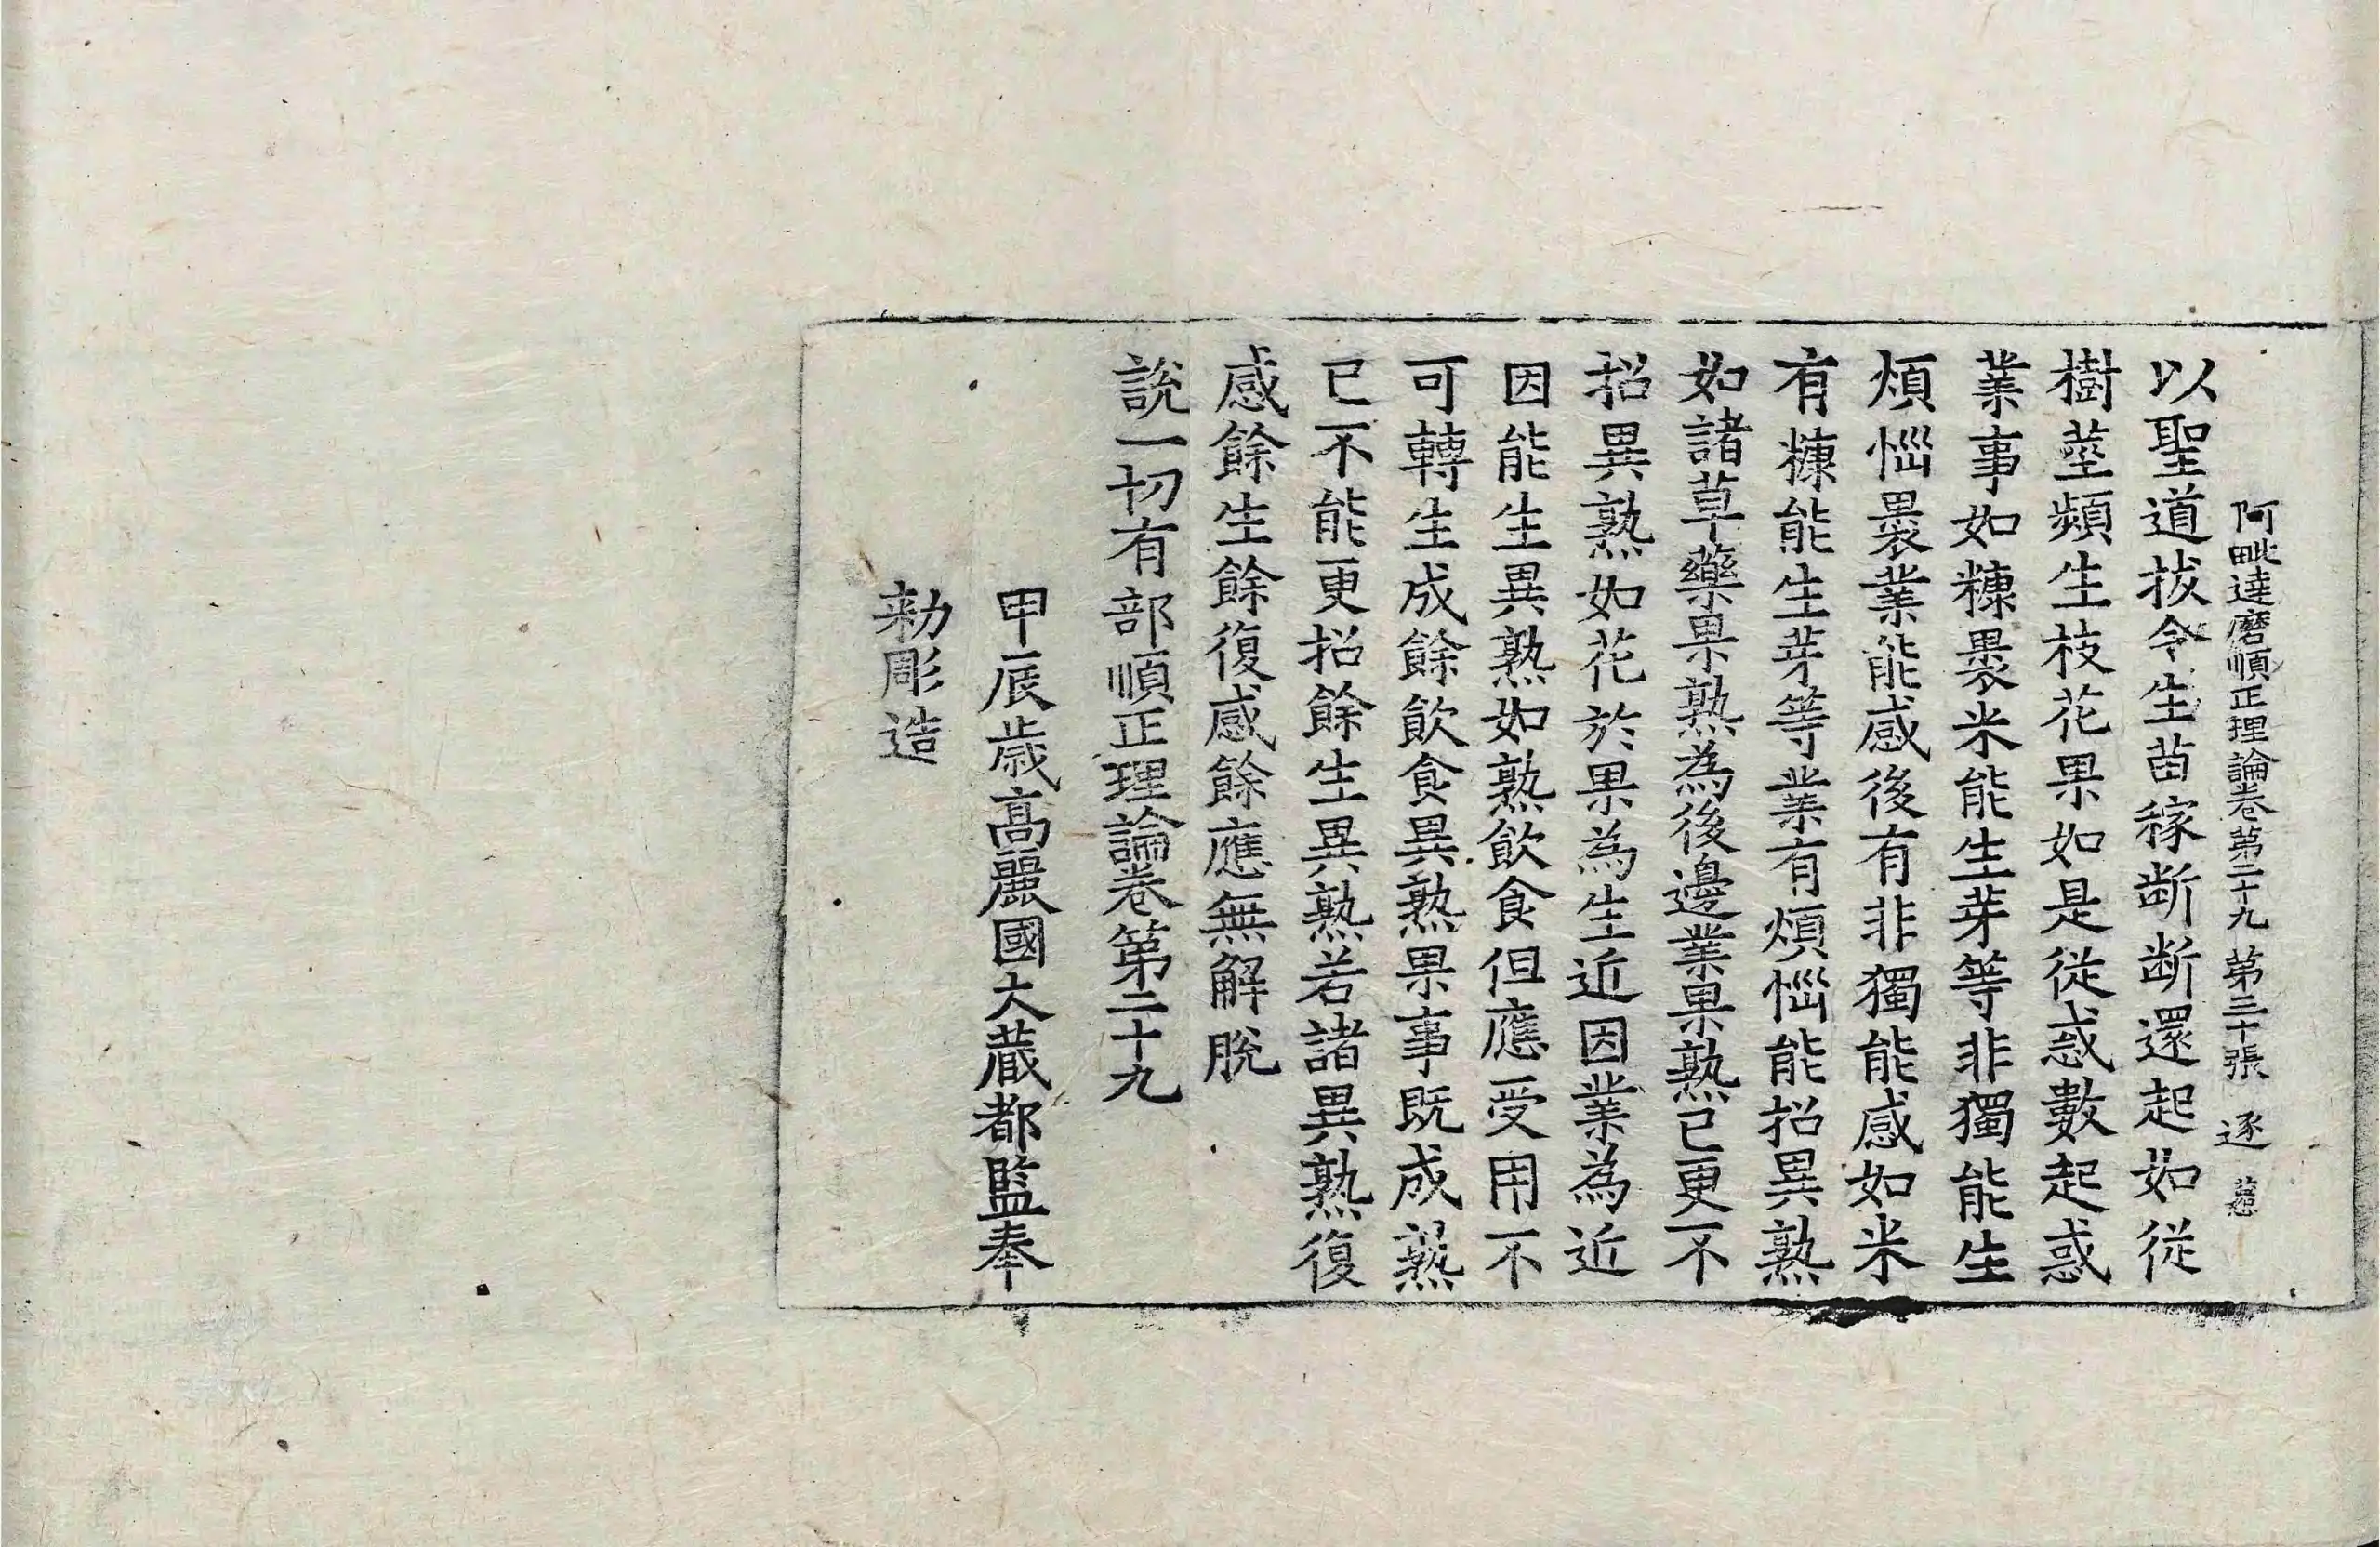 阿毗達磨順正理論卷第二十九 第三十張 逐
以聖道拔令生苗稼斷斷還起如從
樹莖頻生枝花果如是從惑數起惑
業事如糠裹米能生芽等非獨能生
煩惱裹業能感後有非獨能感如米
有糠能生芽等業有煩惱能招異熟
如諸草藥果熟為後邊業果熟已更不
招異熟如花於果為生近因業為近
因能生異熟如熟飲食但應受用不
可轉生成餘飲食異熟果事既成熟
已不能更招餘生異熟若諸異熟復
感餘生餘復感餘應無解脫
說一切有部順正理論卷第二十九
甲辰歲高麗國大藏都監奉
勑彫造